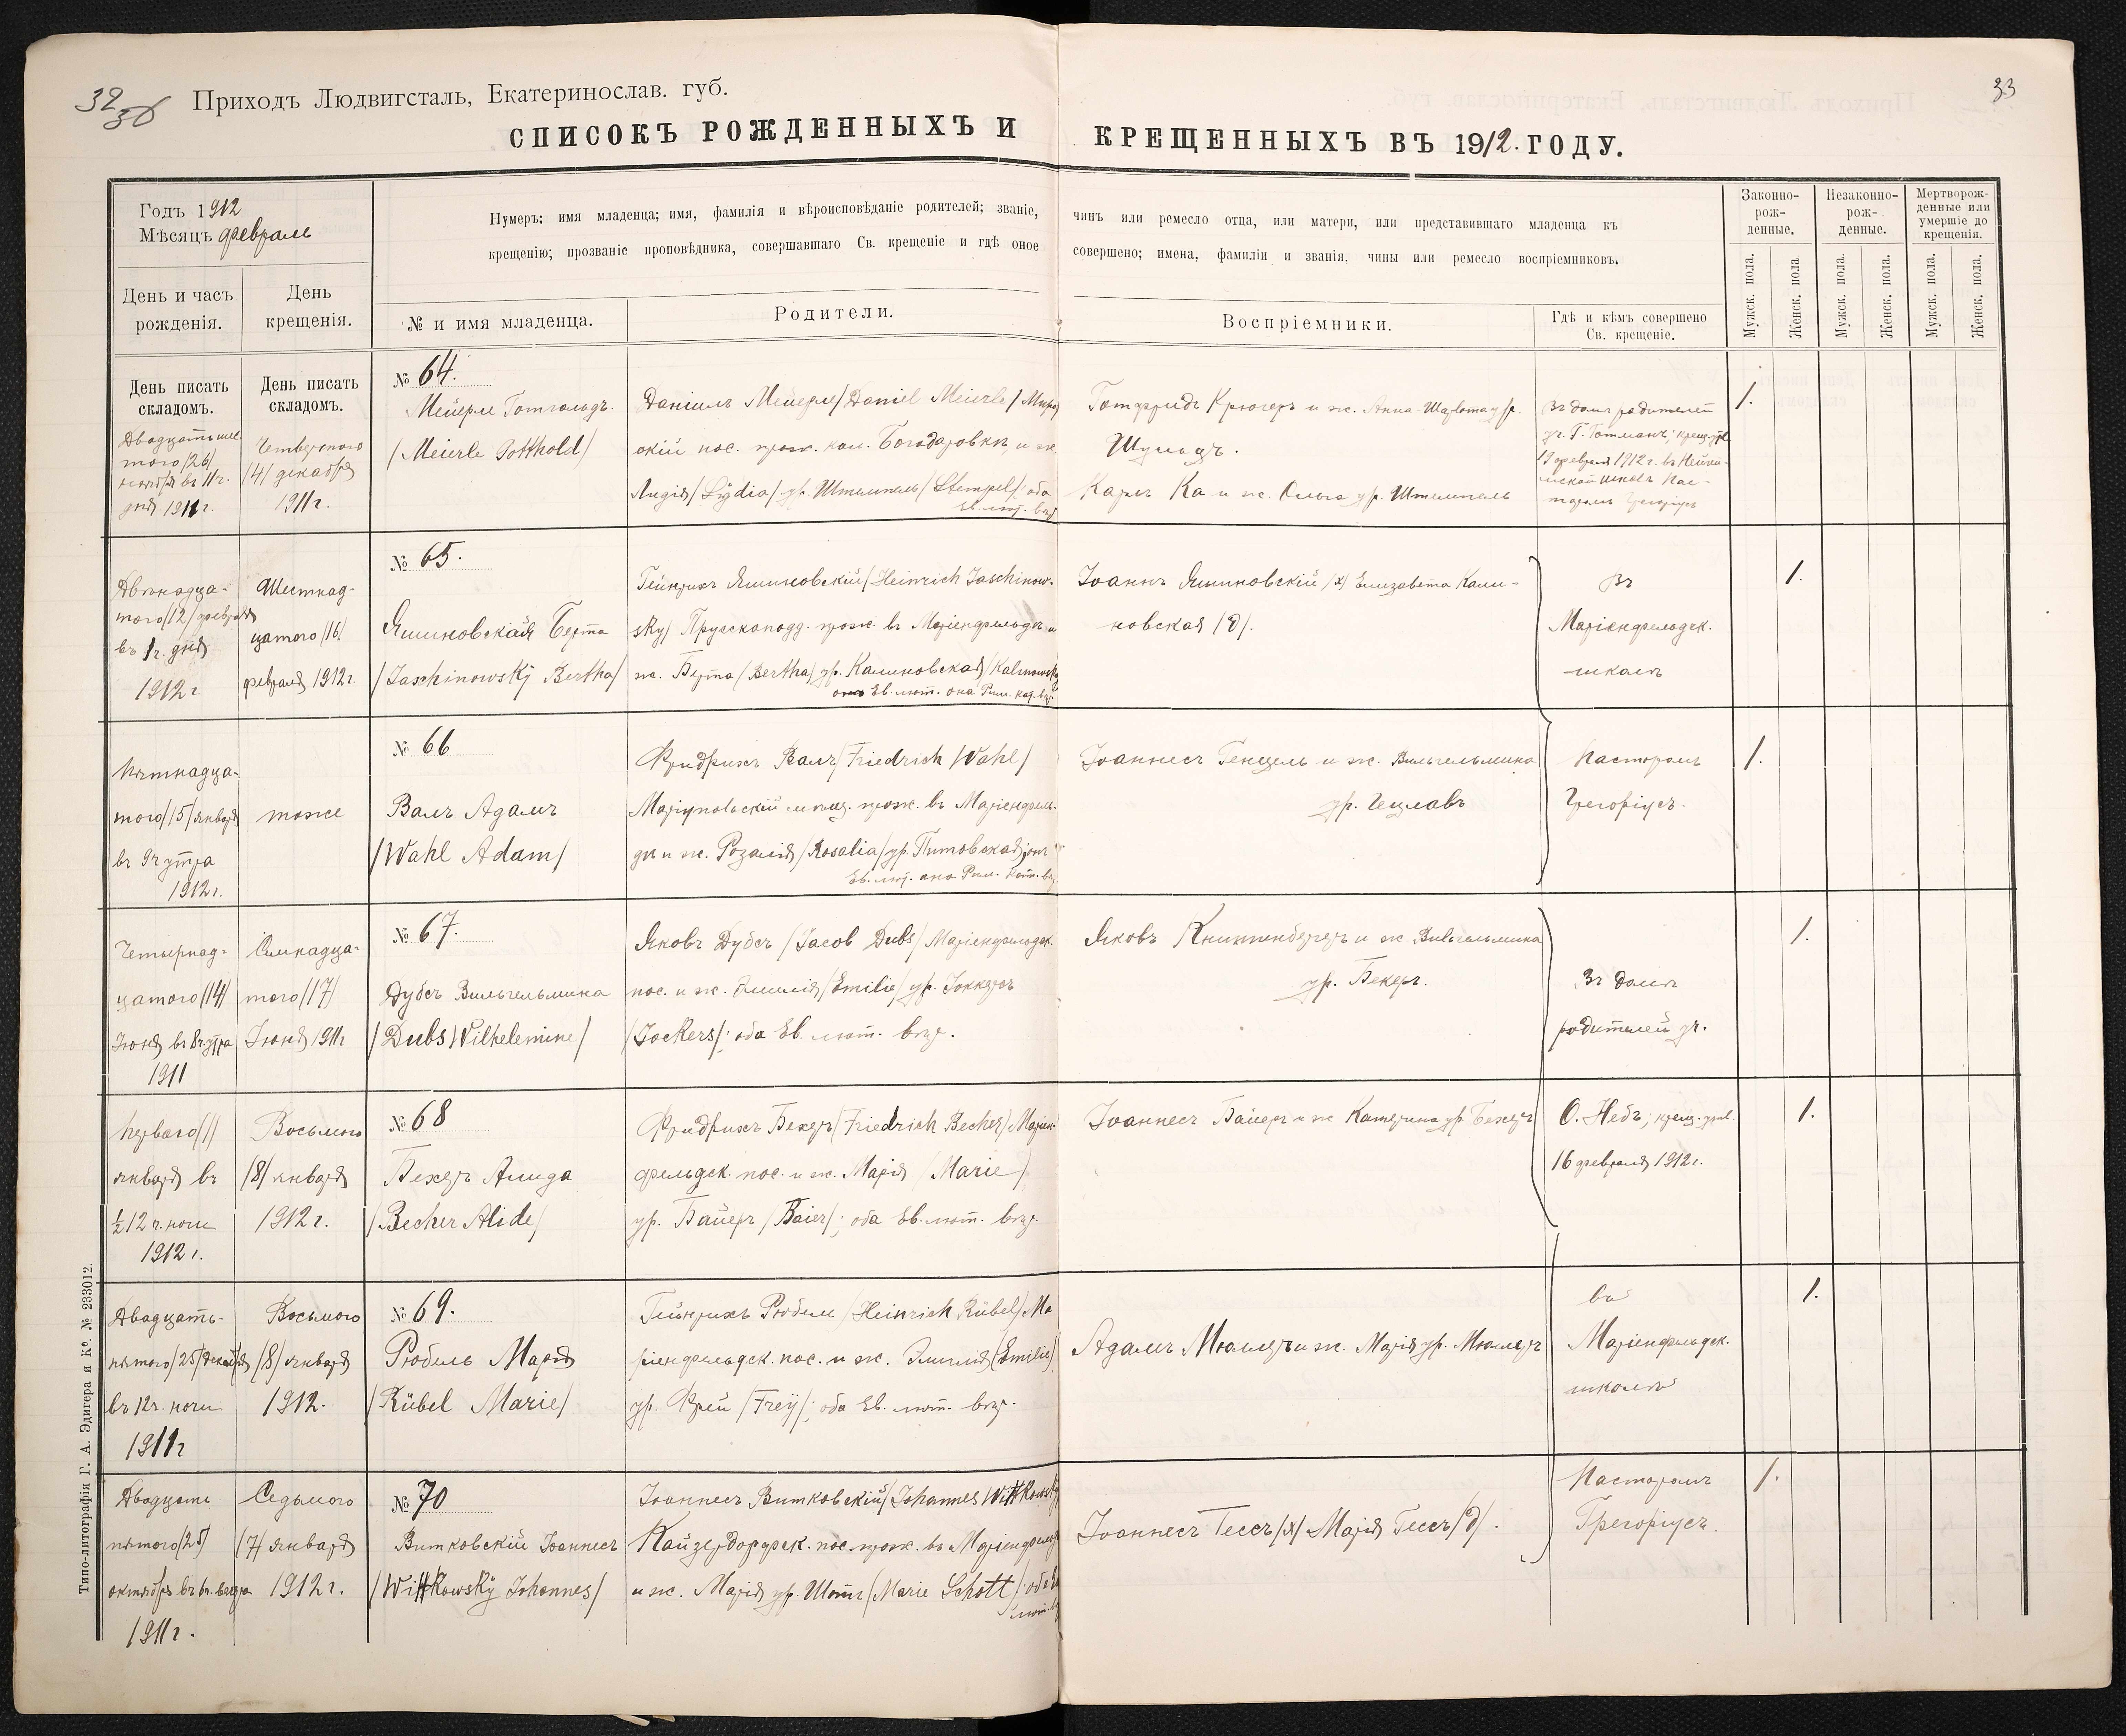 32
36
Приходъ Людвигсталь, Екатеринослав. губ.
33
СПИСОКЪ РОЖДЕННЫХЪ И КРЕЩЕННЫХЪ ВЪ 1912. ГОДУ.
Годъ 1912
Мѣсяцъ февраль
Нумеръ; имя младенца; имя, фамилія и вѣроисповѣданіе родителей; званіе, чинъ или ремесло отца, или матери, или представившаго младенца къ
крещенію; прозваніе проповѣдника, совершавшаго Св. крещеніе и гдѣ оное совершено; имена, фамиліи и званія, чины или ремесло воспріемниковъ.
Законно-
рож-
денные.
Незаконно-
рож-
денные.
Мертворож-
денные или
умершіе до
крещенія.
День и часъ
рожденія.
День
крещенія.
№ и имя младенца.
Родители.
Воспріемники.
Гдѣ и кѣмъ совершено
Св. крещеніе.
Мужск. пола.
Женск. пола
Мужск. пола.
Женск. пола.
Мужск. пола.
Женск. пола.
День писать
складомъ.
День писать
складомъ.
Двадцать шес
того /26/
въ 11 ч.
дня 1911 г.
Четвертого
/4/ декабря
1911 г.
№ 64.
Мейерле Готгольдъ.
/Meierle Gotthold/
Даніилъ Мейерле /Daniel Meierle/
скій пос. прож. кол. Богодаровкѣ, и ж.
Лидія /Lÿdia/ ур. Штемпель /Stempel/; оба
Ев. лют. вѣр.
Готфридъ Крюгеръ и ж. Анна ур.
Шульцъ.
Карлъ Ка и ж. Ольга ур. Штемпель
Въ домѣ родителей
уч. Г. Готманъ; крещ. утв.
19 февраля 1912 г. въ
школѣ Пас-
торомъ Грегоріусъ
1.
Двѣнадца-
того /12/ февраля
въ 1 ч. дня
1912 г
Шестнад-
цатого /16/
февраля 1912 г.
№ 65.
Яшиновская Берта
/Jaschinowskÿ Bertha/
Гейнрихъ Яшиновскій /Heinrich Jaschinow-
sky/ Прусскоподд. прож. въ Маріенфельдѣ, и
ж. Берта /Bertha/ ур. Калиновская /Kalinowsky
онъ Ев. лют. она Рим. кат. вѣр.
Іоаннъ Яшиновскій /х/ Елизавета Кали-
новская /д/.
Въ
Маріенфельдск.
школѣ
1.
Пятнадца-
того /15/ января
въ 9 ч утра
1912 г.
тоже
№ 66
Валъ Адамъ
/Wahl Adam/
Фридрихъ Валъ /Friedrich Wahl/
Маріупольскій мѣщ. прож. въ Маріенфель-
дѣ и ж. Розалія /Rosalia/ ур. Питовская; онъ
Ев. лют. она Рим. Кат. вѣр.
Іоаннесъ Генцель и ж. Вильгельмина
ур. Гецлавъ
Пасторомъ
Грегоріусъ.
1.
Четырнад-
цатого /14/
Іюня въ 8 ч. утра
1911
Семнадца-
того /17/
Іюня 1911 г
№ 67.
Дубсъ Вильгельмина
/Dubs Wilhelemine/
Яковъ Дубсъ /Jacob Dubs/ Маріенфельдск.
пос. и ж. Эмилія /Emilie/ ур. Іоккерсъ
/Jockers/; оба Ев. лют. вѣр.
Яковъ Книппенбергеръ и ж Вильгельмина
ур. Бекеръ.
Въ домѣ
родителей уч.
1.
Перваго /1/
января въ
½ 12 ч. ночи
1912 г.
Восьмого
/8/ января
1912 г.
№ 68
Бехеръ Алида
/Becher Alide/
Фридрихъ Бехеръ /Friedrich Becher/ Маріен-
фельдск. пос. и ж. Марія /Marie/
ур. Байеръ /Baier/; оба Ев. лют. вѣр.
Іоаннесъ Байеръ и ж Катерина ур. Бехеръ
О. Небъ; крещ. утв.
16 февраля 1912 г.
1.
Двадцать-
пятого /25/ декабря
въ 12 ч. ночи
1911 г
Восьмого
/8/ января
1912.
№ 69.
Рюбель Марія
/Rübel Marie/
Гейнрихъ Рюбель /Heinrich Rübel/ Ма
ріенфельдск. пос. и ж. Эмилія (Emilie)
ур. Фрей /Freÿ/; оба Ев. лют. вѣр.
Адамъ Мюллеръ и ж. Марія ур. Мюллеръ
въ
Маріенфельдск.
школѣ
1.
Двадцать
пятого /25/
октября въ 6 ч. вечера
1911 г.
Седьмого
/7/ января
1912 г.
№ 70
Витковскій Іоаннесъ
/Wittkowskÿ Johannes/
Іоаннесъ Витковскій /Johannes Wittkowsky
Кайзердорфск. пос. прож. въ Маріенфельд
и ж. Марія ур. Шотъ /Marie Schott/; оба Ев
лют. вѣр
Іоаннесъ Гессъ /х/ Марія Гессъ /д/.
Пасторомъ
Грегоріусъ.
1.
Типо-литографія Г. А. Эдигера и Кº. № 233012.